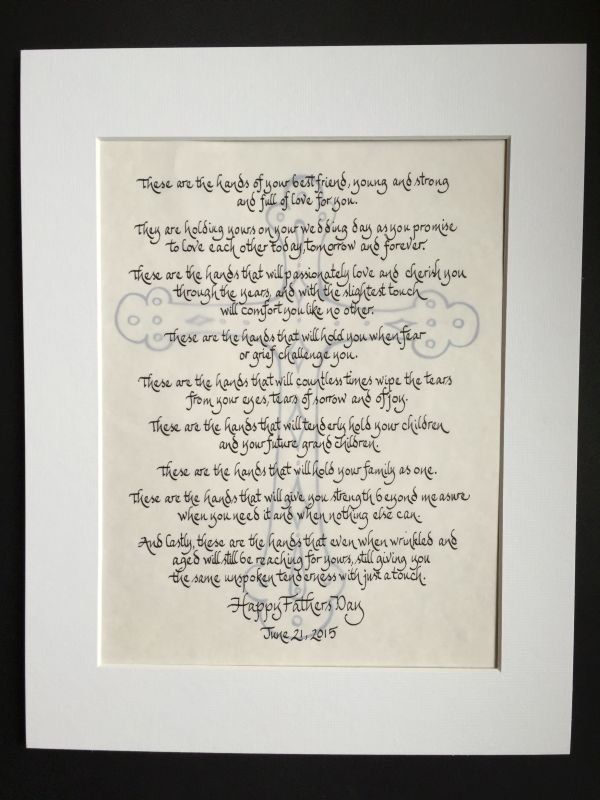 These are the hands of your best friend, young and strong
and full of love for you.
They are holding yours on your wedding day as you promise
to love each other today, tomorrow and forever.
These are the hands that will passionately love and cherish you
through the years, and with the slightest touch
will comfort you like no other.
These are the hands that will hold you when fear
or grief challenge you.
These are the hands that will countless times wipe the tears
from your eyes, tears of sorrow and of joy.
These are the hands that will tenderly hold your children
and your future grand children.
These are the hands that will hold your family as one.
These are the hands that will give you strength beyond measure
when you need it and when nothing else can.
And Lastly, these are the hands that even when wrinkled and
aged will still be reaching for yours, still giving you
the same unspoken tenderness with just a touch.
Happy Fathers Day
June 21, 2015